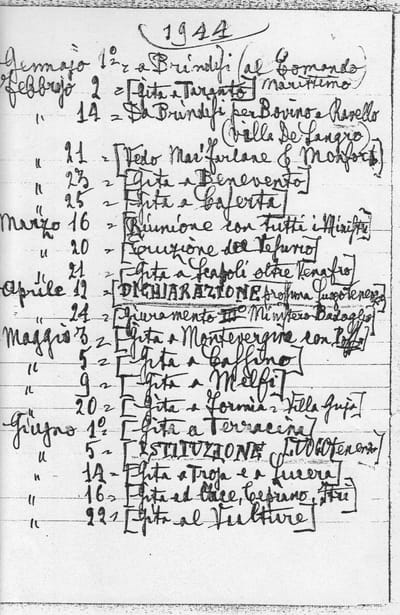 1944
Gennajo 1° = a Brindisi (al Comando
Marittimo)
Febbrajo 2 = [Gita a Taranto]
" 14 = Da Brindisi per Bovino a Ravello
(Villa De Sangro)
" 21 = [Vedo Mac'Farlane & Monfort]
" 23 = [Gita a Benevento]
" 25 = [Gita a Caserta]
Marzo 16 = [Riunione con tutti i Ministri]
" 20 = [Eruzione del Vesuvio]
" 21 = [Gita a Scapoli oltre Venafro]
Aprile 12 = [DICHIARAZIONE prossima Luogotenenza]
" 24 = [Giuramento III° Ministero Badoglio]
Maggio 3 = [Gita a Montevergine con
" 5 = [Gita a Cassino]
" 9 = [Gita a Melfi]
" 20 = [Gita a Formia = Villa
Giugno 1° = [Gita a Terracina]
" 5 = [ISTITUZIONE LUOGOtenenza]
" 14 = [Gita a Troja e a Lucera]
" 16 = [Gita ad Ceprano, Itri]
" 22 = [Gita al Vulture]